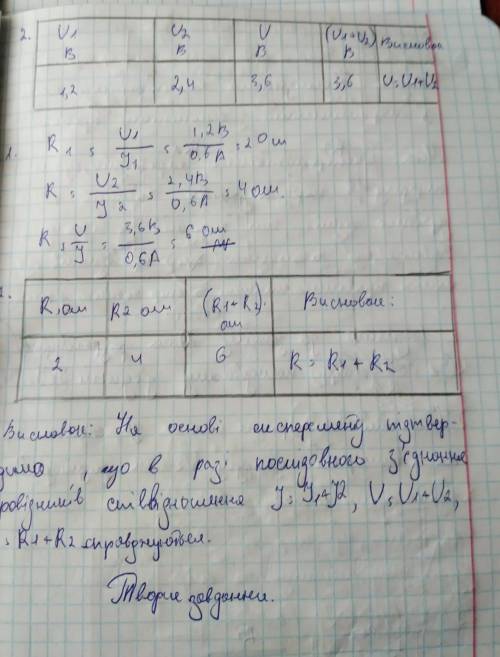 2. U1 В U2 В U В (U1+U2) В Висновок
1,2 2,4 3,6 3,6 U=U1+U2
1. R1 = U1/I1 = 1,2В/0,6А = 2 Ом
R = U2/I2 = 2,4В/0,6А = 4 Ом.
R = U/I = 3,6В/0,6А = 6 Ом
R1 ом R2 ом (R1+R2) ом Висновок:
2 4 6 R = R1 + R2
Висновок: На основі експеременту підтвер-
димо, що в разі послидовного з'єднання
ровідників співвідношення I=I1+I2, U=U1+U2,
= R1+R2 справджуються.
Творче завдання.